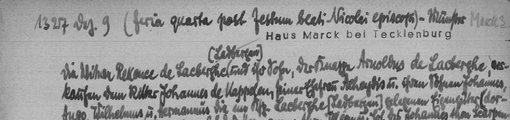 1327 Dez. 9 (feria quarta post festum beati Nicolai episcopi) - Münster Marck 3
Haus Marck bei Tecklenburg
(Ladbergen)
Die Witwe de Lacberghe und ihr Sohn, der Knappe Arnoldus de Lacberghe, ver-
kaufen dem Ritter Johannes de Kappelen, seiner Ehefrau u. ihren Söhnen Johannes,
Hugo, Wilhelmus u. Hermannus die im Ksp. Lacberghe [Ladbergen] gelegenen